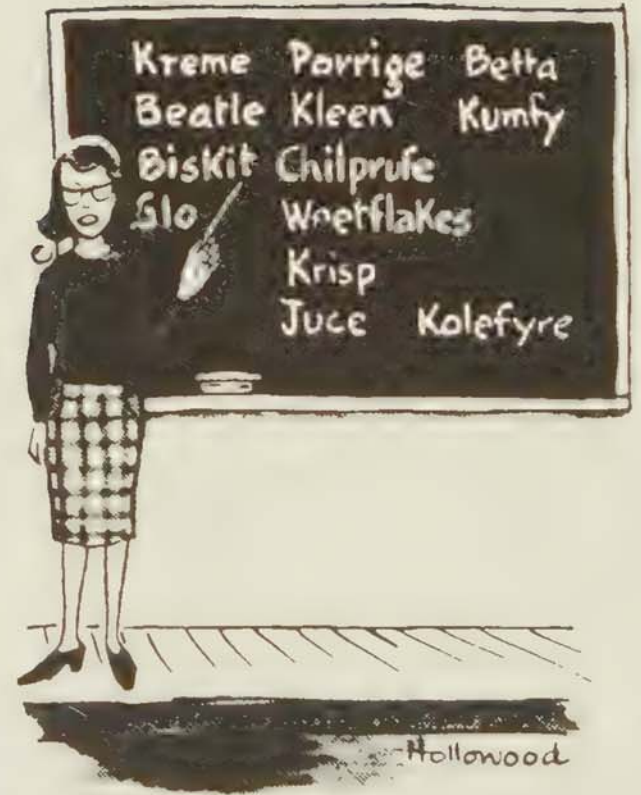 Kreme Porrige Betta
Beatle Kleen Kumfy
Biskit Chilprufe
Glo Weetflakes
Krisp
Juce Kolefyre
Hollowood